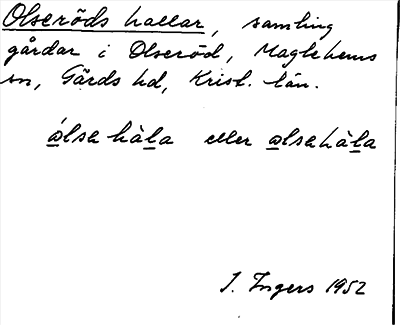 Olseröds hallar, samling
gårdar i Olseröd, Maglehems
sn, Gärds hd, Krist. län.
ólsehàla eller olsehàla
I. Ingers 1952